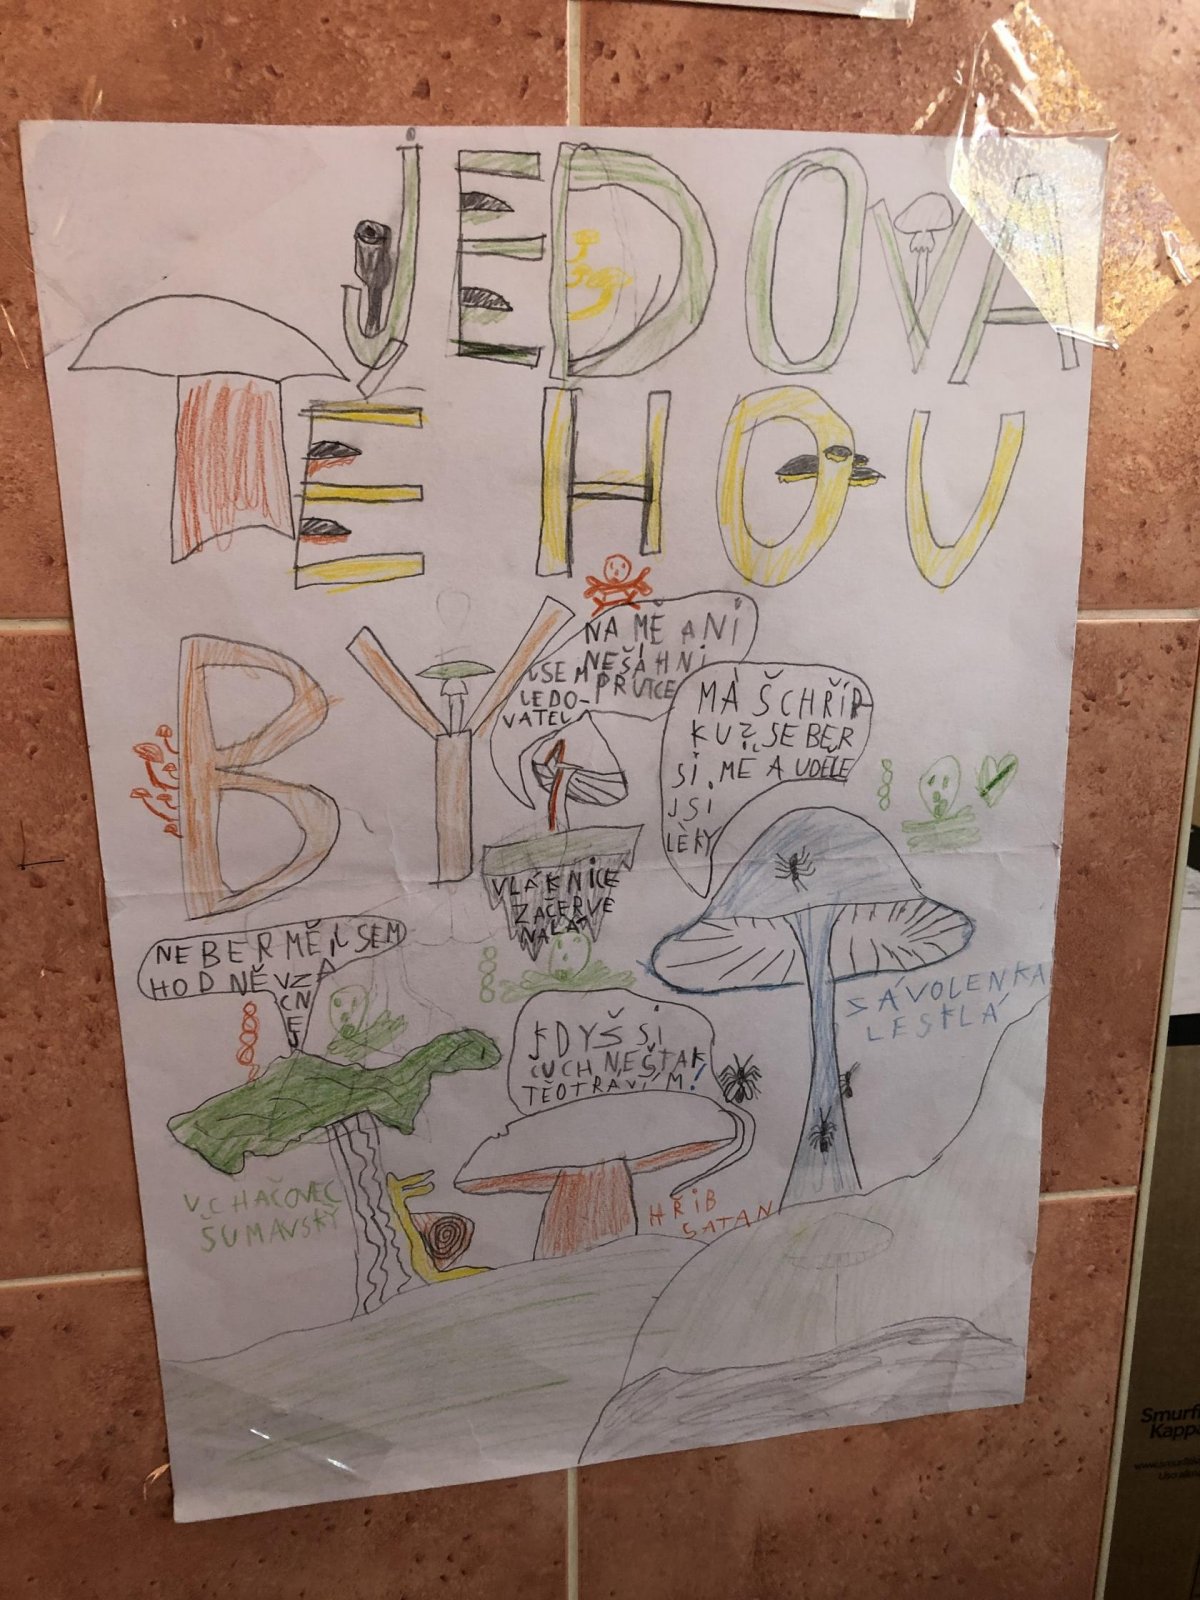 JEDOVA
TÉ HOU
BY
NA MĚ ANI
NEŠÁHNI
JSEM PRUTCE
JEDO-
VATEL
MÁŠ CHŘIP
KU? SEBER
SI MĚ A UDĚLE
JSI
LÉKY
VLÁKNICE
ZAČERVE
NALÁ
NEBER MĚ JSEM
HODNĚ VZÁ
CN
EJ
KDYŠ SI
CUCHNEŠ TAK
TĚ OTRÁVÍM!
SÁVOLENKA
LESKLÁ
V.CHAČOVEC
ŠUMAVSKÝ
HŘIB
SATAN
Smurfi
Kappa